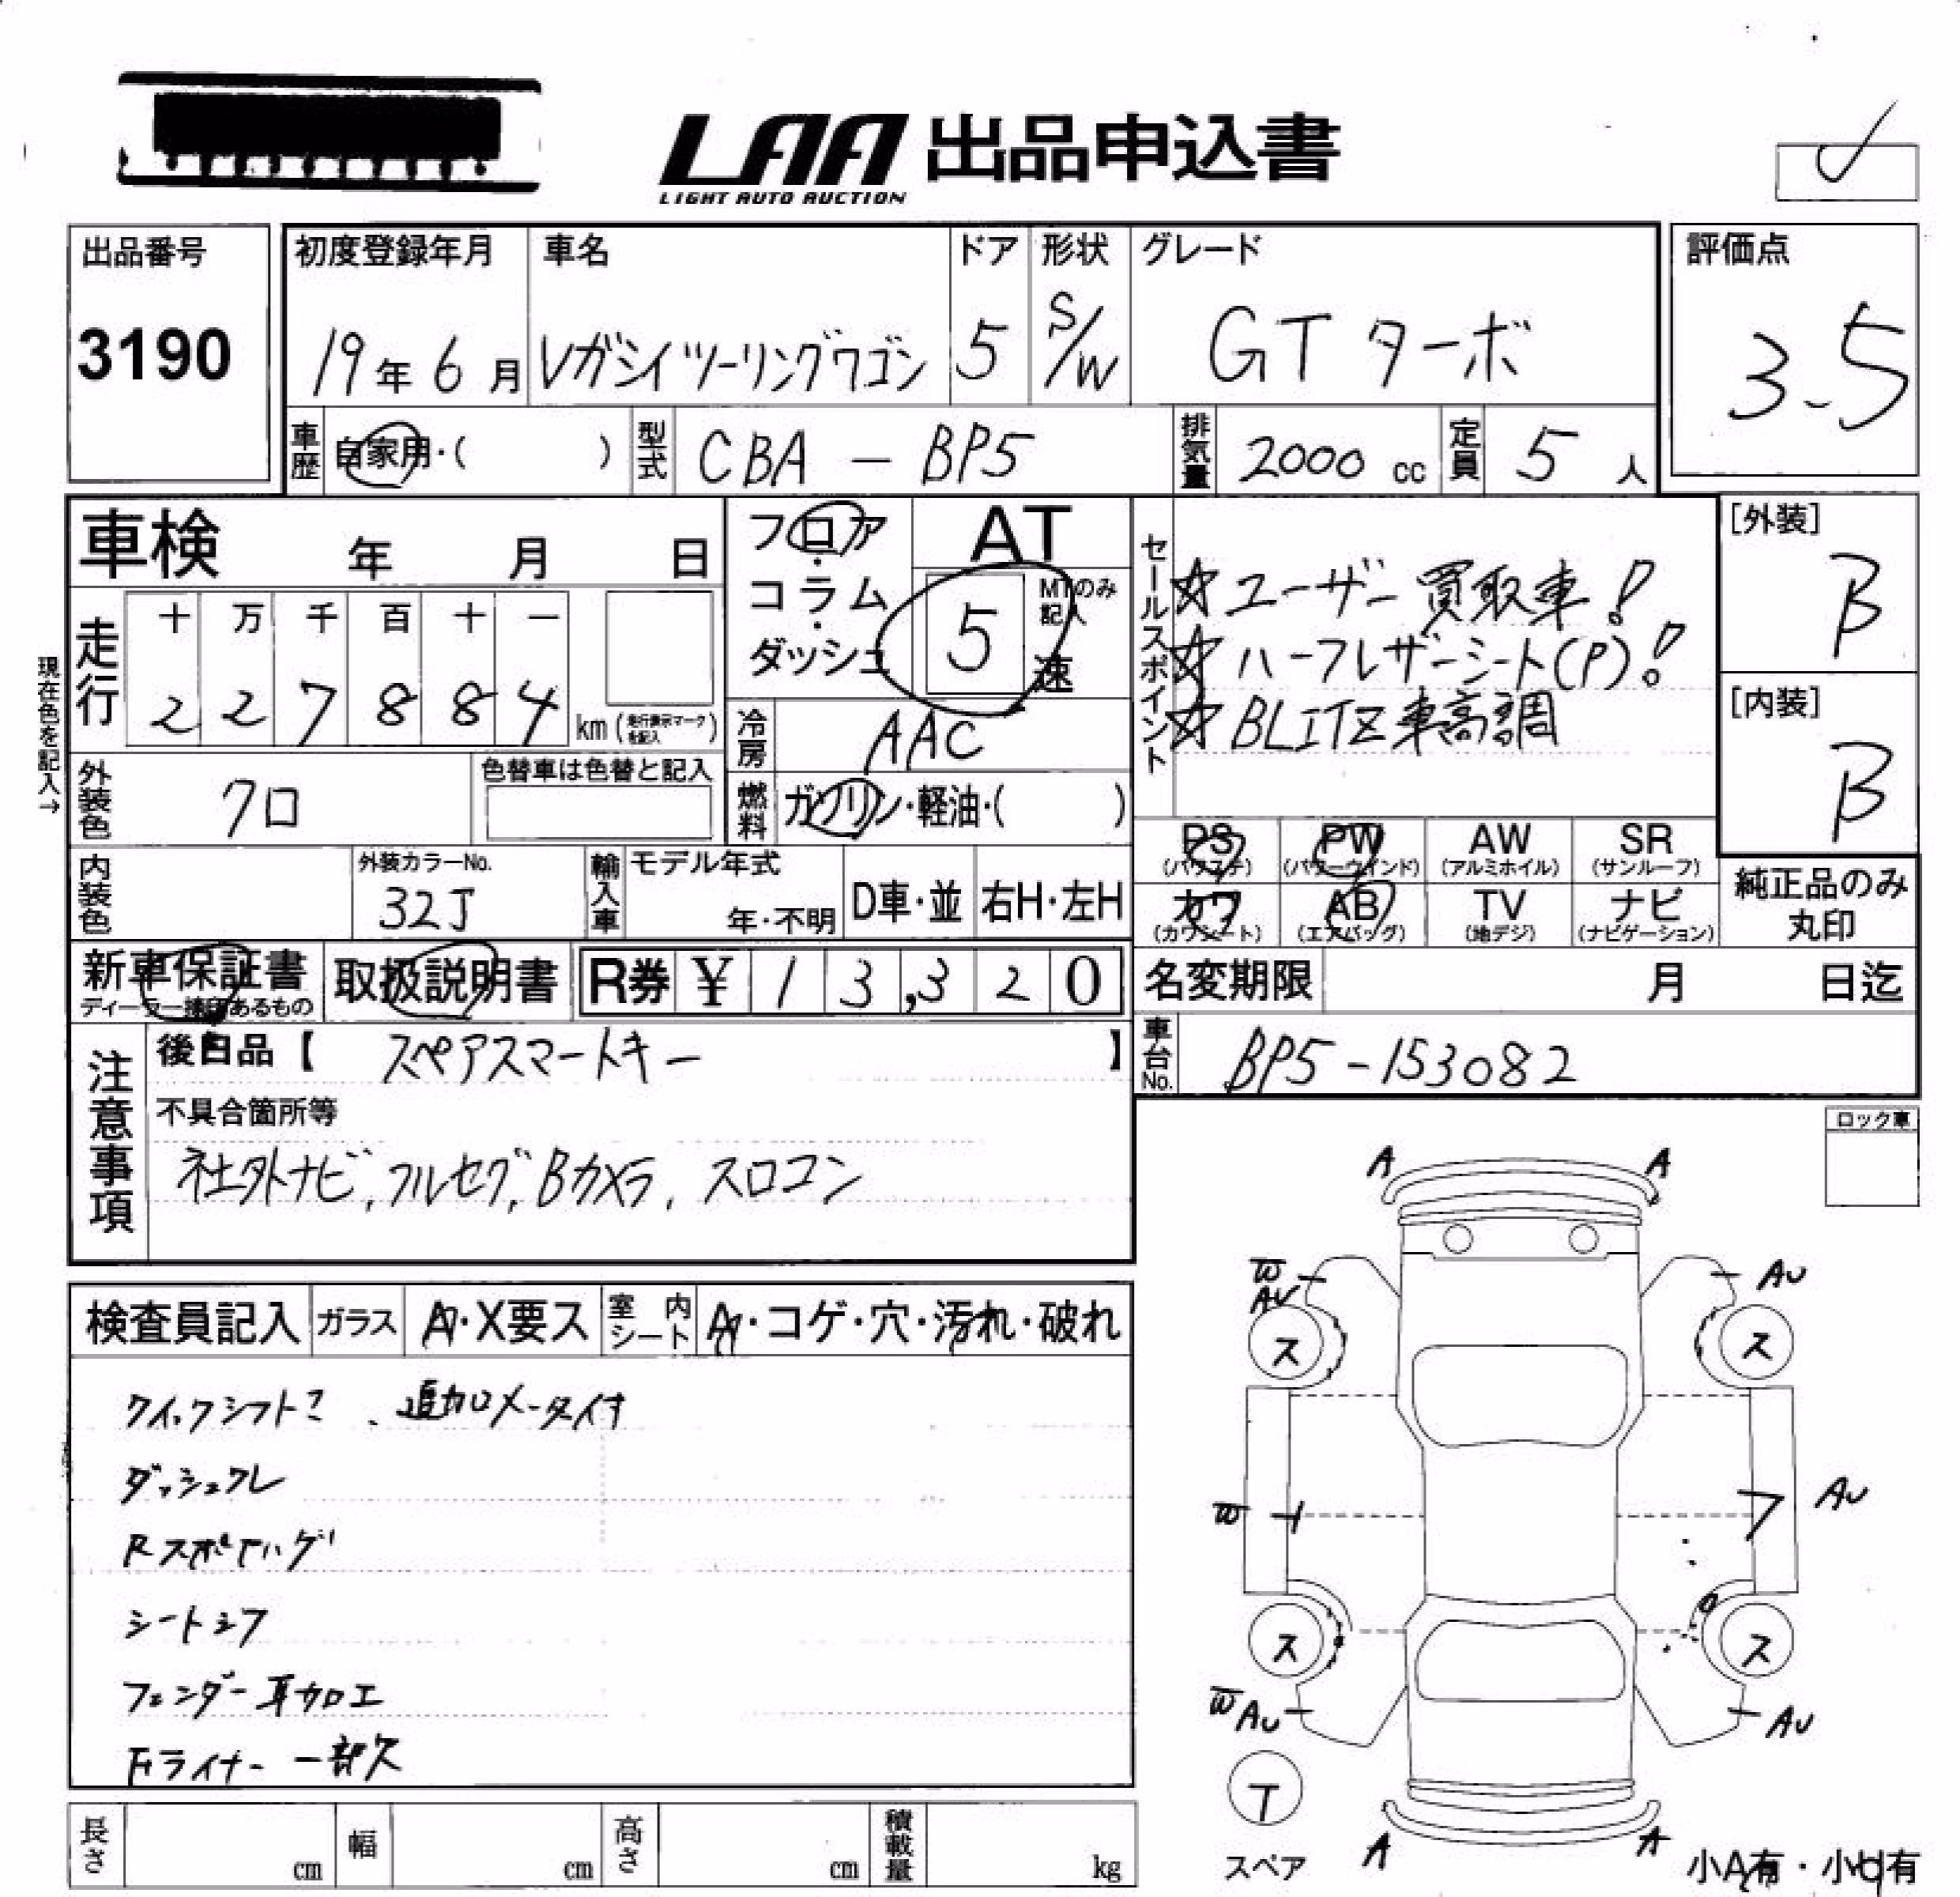 LAA 出品申込書
LIGHT AUTO AUCTION
出品番号
3190
初度登録年月 車名 ドア 形状 グレード
19年 6月 レガシィツーリングワゴン 5 S/W GT ターボ
評価点
3.5
車歴 自家用・( ) 型式 CBA - BP5 排気量 2000 cc 定員 5 人
車検 年 月 日
フロア・コラム・ダッシュ
AT
5 速 MTのみ記入
セールスポイント
☆ユーザー買取車!
☆ハーフレザーシート(P)!
☆BLITZ車高調
[外装]
B
[内装]
B
現在色を記入→
走行 十 万 千 百 十 一
2 2 7 8 8 4 km (走行表示マークを記入)
冷房 AAC
外装色 クロ 色替車は色替と記入
燃料 ガソリン・軽油・( )
PS (パワステ) PW (パワーウインド) AW (アルミホイル) SR (サンルーフ)
カワ (カワシート) AB (エアバッグ) TV (地デジ) ナビ (ナビゲーション)
純正品のみ丸印
内装色 外装カラーNo. 32J 輸入車 モデル年式 年・不明 D車・並 右H・左H
新車保証書 取扱説明書 R券 ¥ 1 3,3 2 0
名変期限 月 日迄
車台No. BP5-153082
注意事項
後日品【 スペアスマートキー 】
不具合箇所等
社外ナビ, フルセグ, Bカメラ, スロコン
ロック車
検査員記入 ガラス A・X要ス 室内シート A・コゲ・穴・汚れ・破れ
クイックシフト 、追加メータ付
ダッシュワレ
シートシワ
フェンダー耳加工
Fライナー 一部欠
A A
W AU AU
ス ス
W AU
ス ス
W AU AU
T
スペア
A A
小A有・小U有
長さ cm 幅 cm 高さ cm 積載量 kg